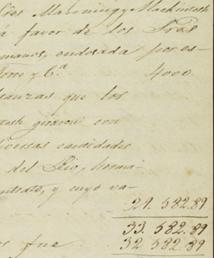 Manning y Mackintosh
á favor de los Sres
manos, endosada por es-
y Ca. 4000.
lanzas que los
tosh giraron con
diversas cantidades
del Rio, herma
y cuyo va-
21. 582.89
33. 582.89
32. 582.89
fue